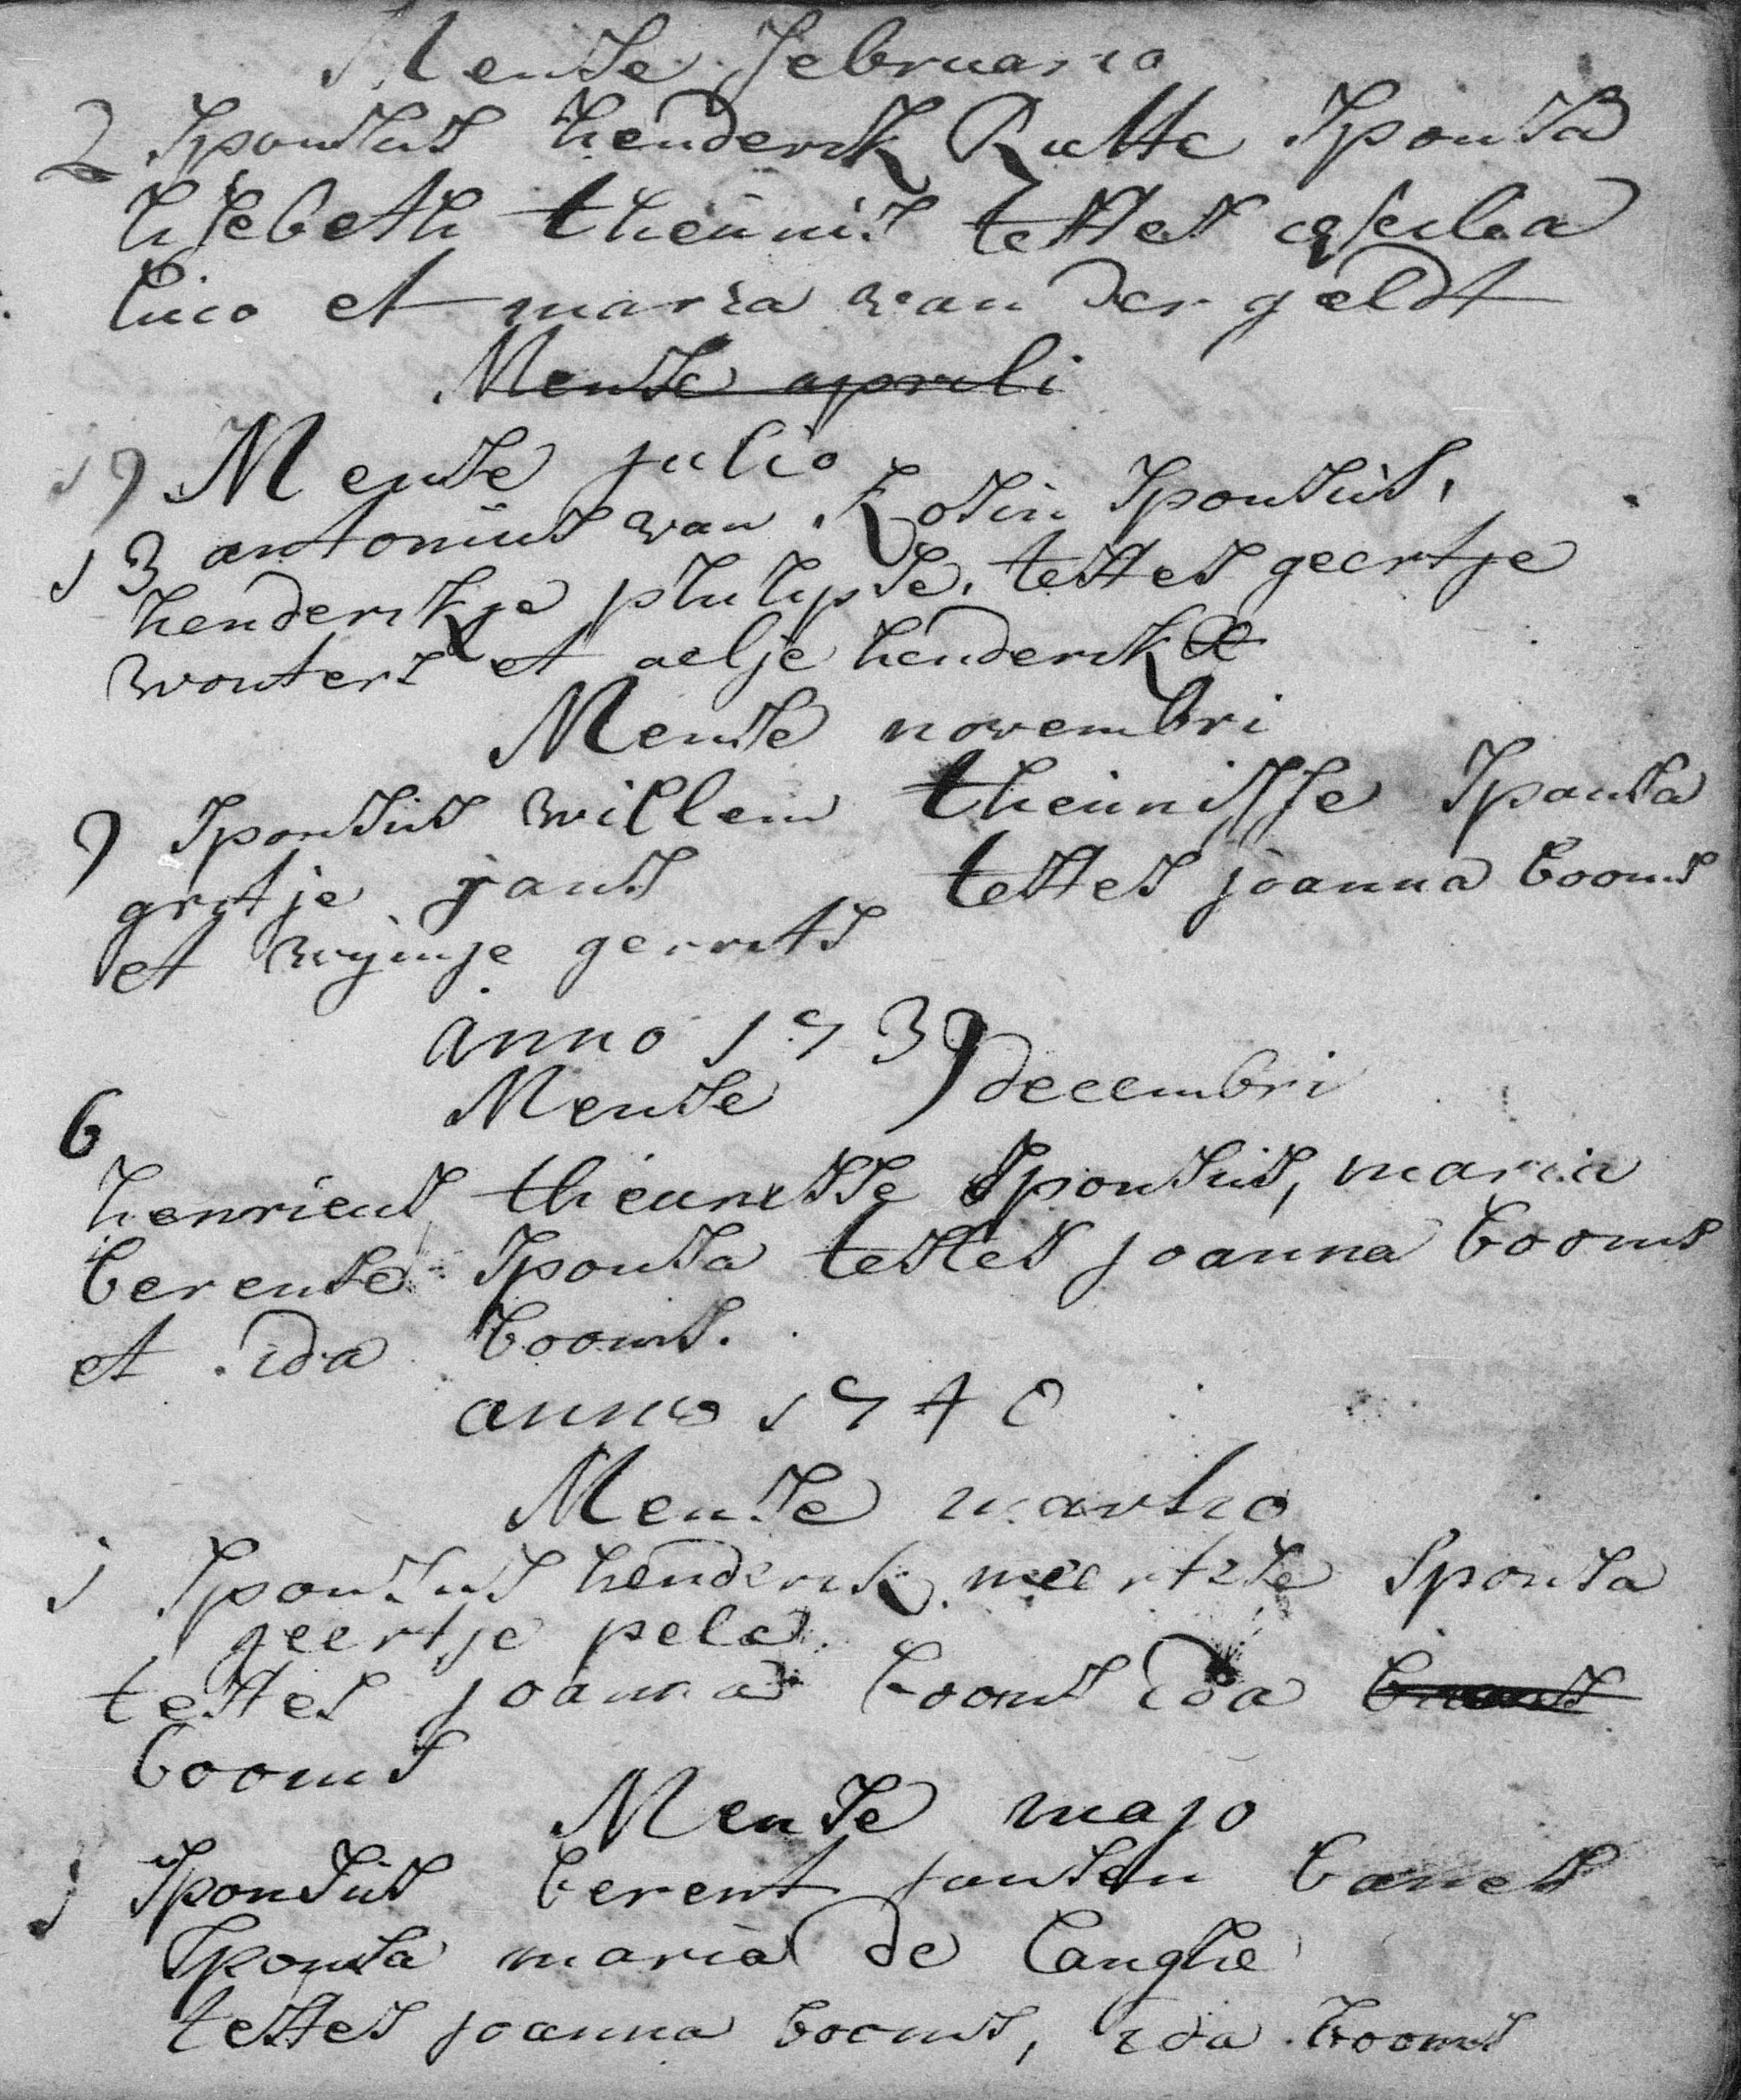 Mense februario
2 Sponsus henderik Rutte Sponsa
lisebeth theunis testes
luco et maria van der geldt
Mense aprili
19 Mense julio
13 antonius van Kotin Sponsus,
henderikje philipse. testes geertje
wouters et aelje henderikse
Mense novembri
9 Sponsus willem theunisse Sponsa
gritje jans testes joanna booms
et wijmje gerrits
anno 1739
Mense decembri
6
henricus theunisse Sponsus, maria
berense Sponsa testes joanna booms
et ida booms.
anno 1740
Mense martio
1 Sponsus henderik meertese Sponsa
geertje pele
testes joanna booms ida
booms
Mense majo
1 Sponsus berent jansen
Sponsa maria de langhe
testes joanna booms, ida booms